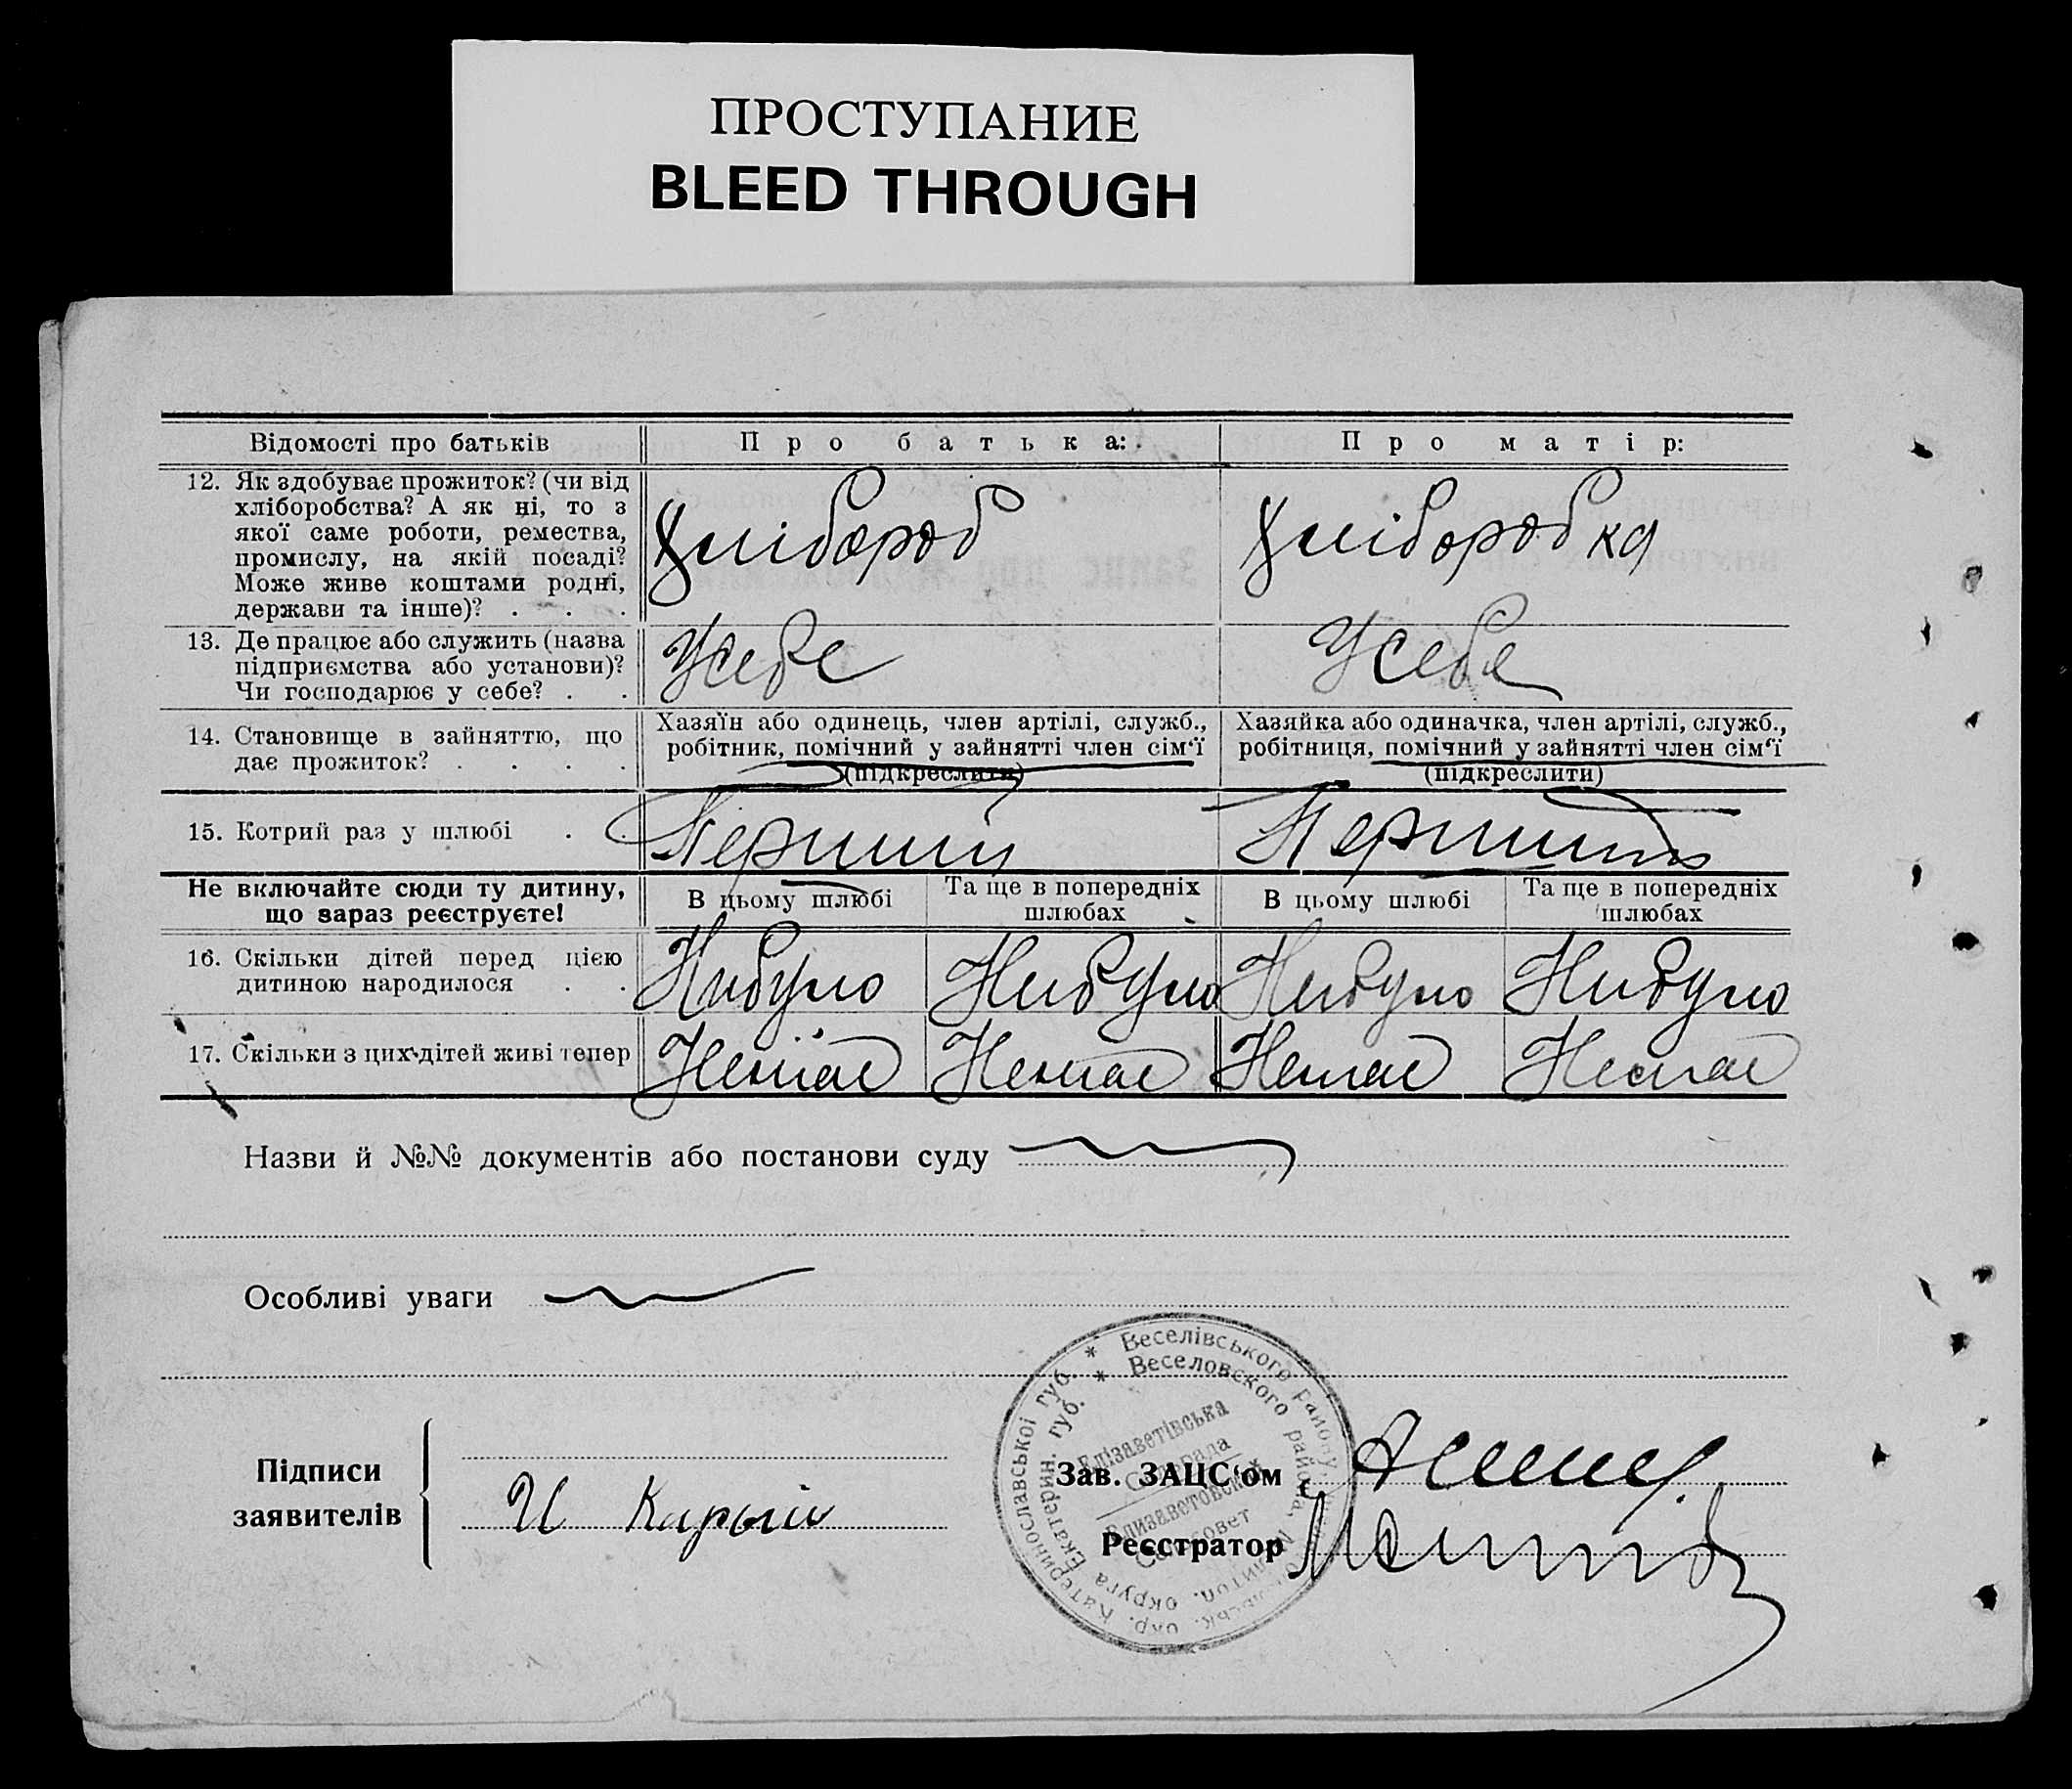 ПРОСТУПАНИЕ
BLEED THROUGH
Відомості про батьків
Про батька:
Про матір:
12. Як здобуває прожиток? (чи від
хліборобства? А як ні, то з
якої саме роботи, ремества,
промислу, на якій посаді?
Може живе коштами родні,
держави та інше)? . . .
Хлібороб
Хліборобка
13. Де працює або служить (назва
підприємства або установи)?
Чи господарює у себе? . .
У себе
У себе
14. Становище в зайняттю, що
дає прожиток? . . . .
Хазяїн або одинець, член артілі, служб.,
робітник, помічний у зайнятті член сім'ї
(підкреслити)
Хазяйка або одиначка, член артілі, служб.,
робітниця, помічний у зайнятті член сім'ї
(підкреслити)
15. Котрий раз у шлюбі . .
Перший
Перший
Не включайте сюди ту дитину,
що зараз реєструєте!
В цьому шлюбі
Та ще в попередніх
шлюбах
В цьому шлюбі
Та ще в попередніх
шлюбах
16. Скільки дітей перед цією
дитиною народилося . .
Нибуло
Нибуло
Нибуло
Нибуло
17. Скільки з цих дітей живі тепер
Немає
Немає
Немає
Немає
Назви й №№ документів або постанови суду
Особливі уваги
* Веселівського району,
окр. Катеринославської губ.
* Веселовского района, Мелитоп. округа Екатерин. губ.
Єлізаветівська
Сельрада
Елизаветовский
Сельсовет
Підписи
заявителів
И
Зав. ЗАЦС'ом
Реєстратор